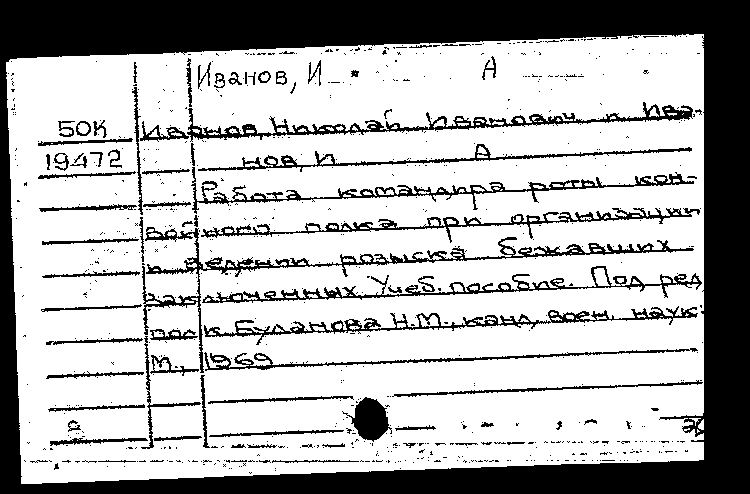 Иванов, И. А
50К Иванов, Николай Иванович и Ива-
19472 нов, И А
Работа командира роты кон-
войного полка при организации
и ведении розыска бежавших
заключенных Учеб. пособие. Под ред
полк Буланова Н.М., канд. воен. наук.
М., 1969